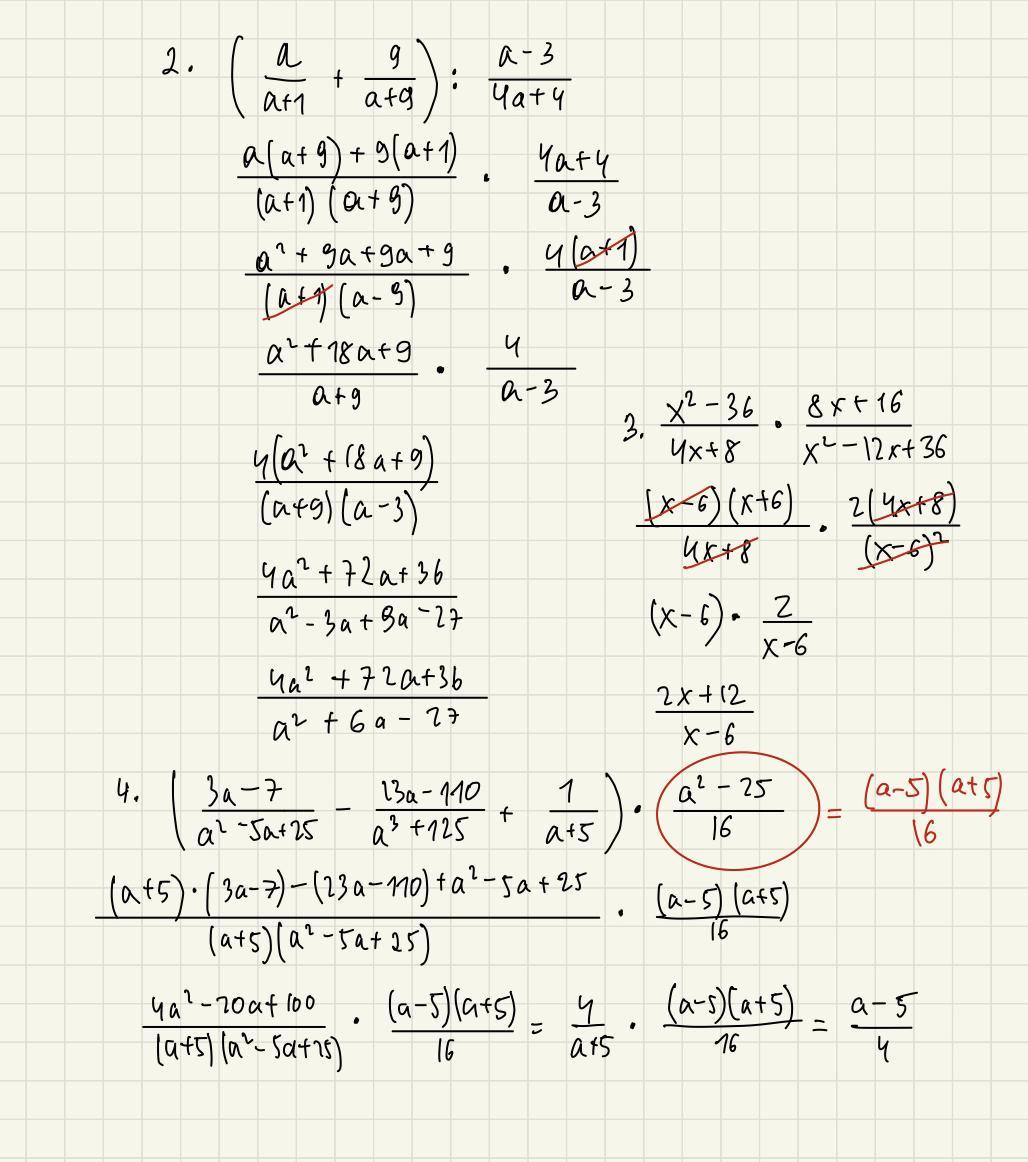 2. (a/(a+1) + 9/(a+9)) : (a-3)/(4a+4)
(a(a+9) + 9(a+1))/((a+1)(a+9)) · (4a+4)/(a-3)
(a² + 9a+9a+9)/((a+1)(a-9)) · (4(a+1))/(a-3)
(a² + 18a+9)/(a+9) · 4/(a-3)
(4(a² + 18a+9))/((a+9)(a-3))
(4a² + 72a+36)/(a² - 3a+9a-27)
(4a² + 72a+36)/(a² + 6a - 27)
3. (x² - 36)/(4x+8) · (8x+16)/(x² - 12x+36)
((x-6)(x+6))/(4x+8) · (2(4x+8))/((x-6)²)
(x-6) · 2/(x-6)
(2x+12)/(x-6)
4. ((3a-7)/(a² - 5a+25) - (23a-110)/(a³ + 125) + 1/(a+5)) · (a² - 25)/16 = ((a-5)(a+5))/16
((a+5)·(3a-7)-(23a-110)+a²-5a+25)/((a+5)(a²-5a+25)) · ((a-5)(a+5))/16
(4a²-20a+100)/((a+5)(a²-5a+25)) · ((a-5)(a+5))/16 = 4/(a+5) · ((a-5)(a+5))/16 = (a-5)/4